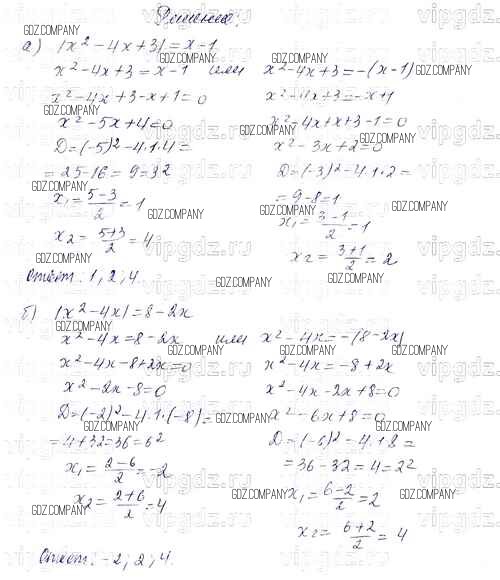 Решение:
а) |x² - 4x + 3| = x - 1
x² - 4x + 3 = x - 1 или x² - 4x + 3 = -(x - 1)
x² - 4x + 3 - x + 1 = 0 x² - 4x + 3 = -x + 1
x² - 5x + 4 = 0 x² - 4x + x + 3 - 1 = 0
D = (-5)² - 4·1·4 = x² - 3x + 2 = 0
= 25 - 16 = 9 = 3² D = (-3)² - 4·1·2 =
x₁ = (5 - 3)/2 = 1 = 9 - 8 = 1
x₂ = (5 + 3)/2 = 4 x₁ = (3 - 1)/2 = 1
x₂ = (3 + 1)/2 = 2
Ответ: 1, 2, 4.
б) |x² - 4x| = 8 - 2x
x² - 4x = 8 - 2x или x² - 4x = -(8 - 2x)
x² - 4x - 8 + 2x = 0 x² - 4x = -8 + 2x
x² - 2x - 8 = 0 x² - 4x - 2x + 8 = 0
D = (-2)² - 4·1·(-8) = x² - 6x + 8 = 0
= 4 + 32 = 36 = 6² D = (-6)² - 4·1·8 =
x₁ = (2 - 6)/2 = -2 = 36 - 32 = 4 = 2²
x₂ = (2 + 6)/2 = 4 x₁ = (6 - 2)/2 = 2
x₂ = (6 + 2)/2 = 4
Ответ: -2; 2; 4.
GDZ.COMPANY
vipgdz.ru